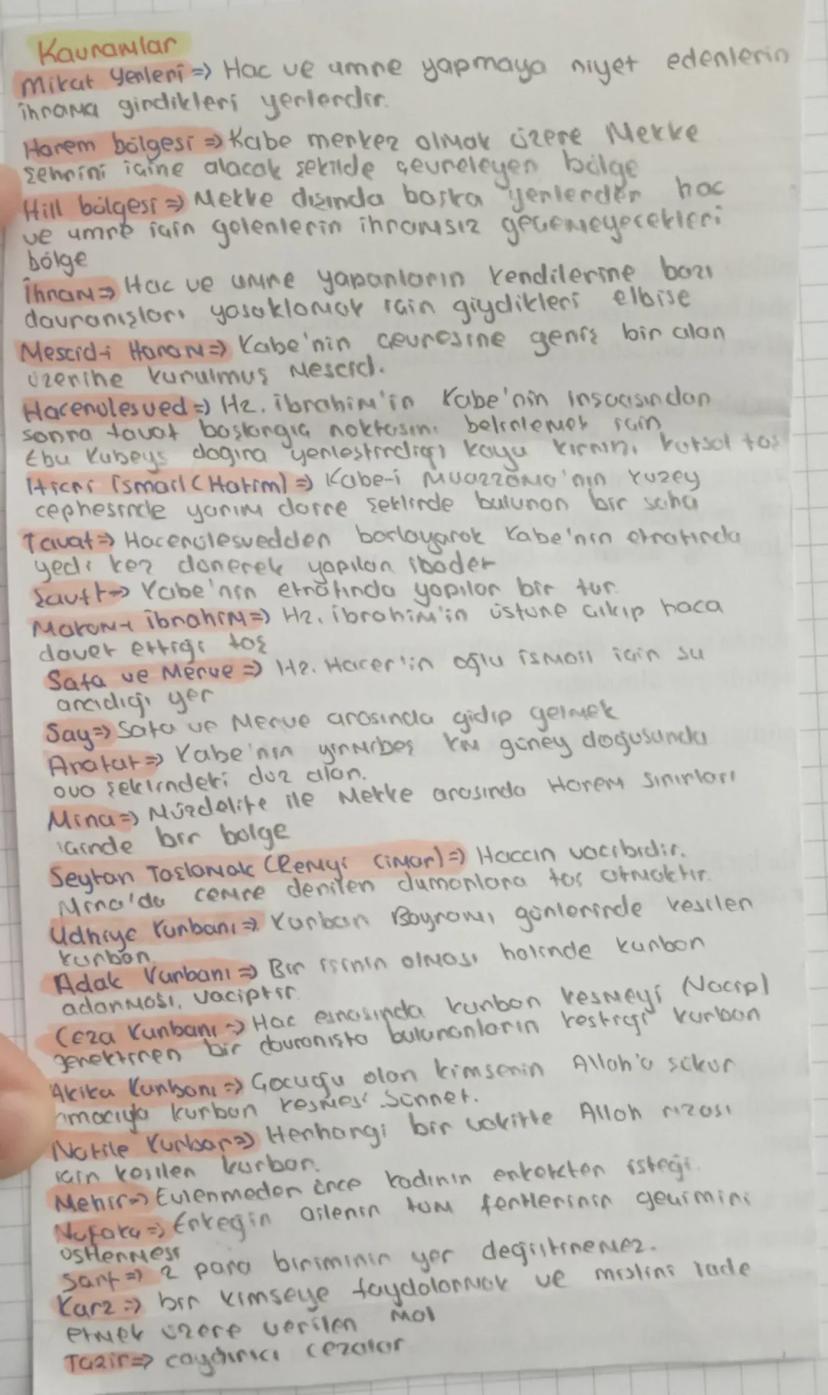 Kavramlar
Mikat Yerleri => Hac ve umre yapmaya niyet edenlerin
ihrama girdikleri yerlerdir.
Harem bölgesi => Kabe merkez olmak üzere Mekke
şehrini içine alacak şekilde çevreleyen bölge
Hill bölgesi => Mekke dışında başka yerlerden hac
ve umre için gelenlerin ihramsız geçemeyecekleri
bölge
İhram => Hac ve umre yapanların kendilerine bazı
davranışları yasaklamak için giydikleri elbise
Mescid-i Haram => Kabe'nin çevresine geniş bir alan
üzerine kurulmuş Mescid.
Hacerulesved => Hz. İbrahim'in Kabe'nin inşaasından
sonra tavaf başlangıç noktasını belirlemek için
Ebu Kubeys dağına yerleştirdiği koyu kırmızı kutsal taş
Hicri İsmail (Hatim) => Kabe-i Muazzama'nın kuzey
cephesinde yarım daire şeklinde bulunan bir saha
Tavaf => Hacerulesvedden başlayarak Kabe'nin etrafında
yedi kez dönerek yapılan ibadet
Şavt => Kabe'nin etrafında yapılan bir tur.
Makam-ı İbrahim => Hz. İbrahim'in üstüne çıkıp haca
davet ettiği taş
Safa ve Merve => Hz. Hacer'in oğlu İsmail için su
aradığı yer
Say => Safa ve Merve arasında gidip gelmek
Arafat => Kabe'nin yirmibeş km güney doğusunda
ova şeklindeki düz alan.
Mina => Müzdelife ile Mekke arasında Harem sınırları
içinde bir bölge
Şeytan Taşlamak (Remyi Cimar) => Haccın vacibidir.
Mina'da cemre denilen dumanlara taş atmaktır.
Udhiye Kurbanı => Kurban Bayramı günlerinde kesilen
kurban.
Adak Kurbanı => Bir işinin olması halinde kurban
adanması. vaciptir
Ceza Kurbanı => Hac esnasında kurban kesmeyi (Vacip)
gerektiren bir davranışta bulunanların kestiği kurban
Akika Kurbanı => Çocuğu olan kimsenin Allah'a şükür
amacıyla kurban kesmesi. Sünnet.
Nafile Kurban => Herhangi bir vakitte Allah rızası
için kesilen kurban.
Mehir => Evlenmeden önce kadının erkekten isteği.
Nafaka => Erkeğin ailenin tüm fertlerinin geçimini
üstlenmesi
Sarf => 2 para biriminin yer değiştirmesi.
Karz => bir kimseye faydalanmak ve mislini iade
etmek üzere verilen mal
Tazir => caydırıcı cezalar